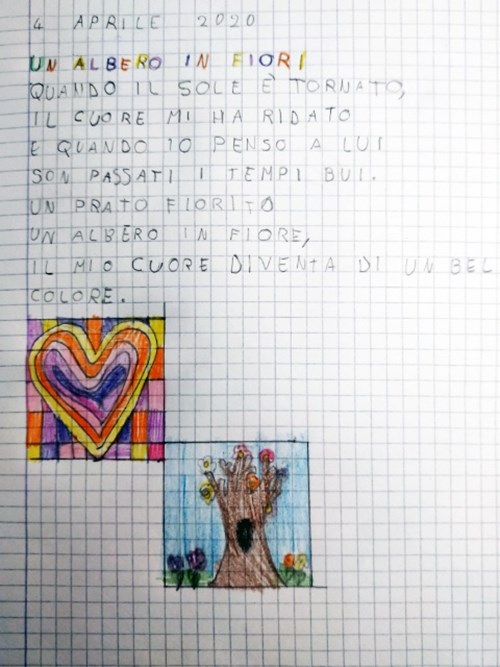 4 APRILE 2020
UN ALBERO IN FIORI
QUANDO IL SOLE È TORNATO,
IL CUORE MI HA RIDATO
E QUANDO IO PENSO A LUI
SON PASSATI I TEMPI BUI.
UN PRATO FIORITO
UN ALBERO IN FIORE,
IL MIO CUORE DIVENTA DI UN BEL
COLORE.